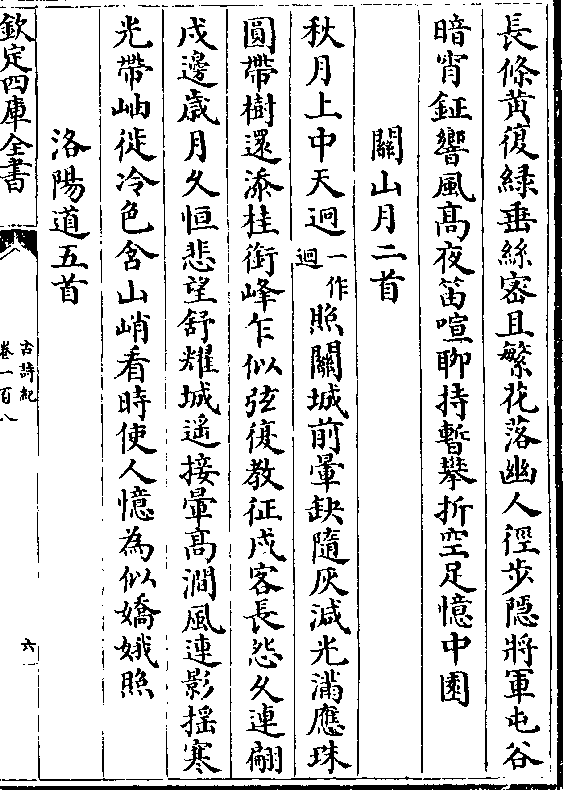 長條黄復緑垂絲密且繁花落幽人徑步隠將軍屯谷
暗宵鉦響風髙夜笛喧聊持暫攀折空足憶中園
關山月二首
秋月上中天迥一作迴照關城前暈缺隨灰減光滿應珠
圓帶樹還添桂銜峰乍似弦復教征戍客長怨久連翩
戍邊歳月久恒悲望舒耀城遥接暈髙澗風連影揺寒
光帶岫徙冷色含山峭看時使人憶為似嬌娥照
洛陽道五首
欽定四庫全書
古詩紀
卷一百八
六